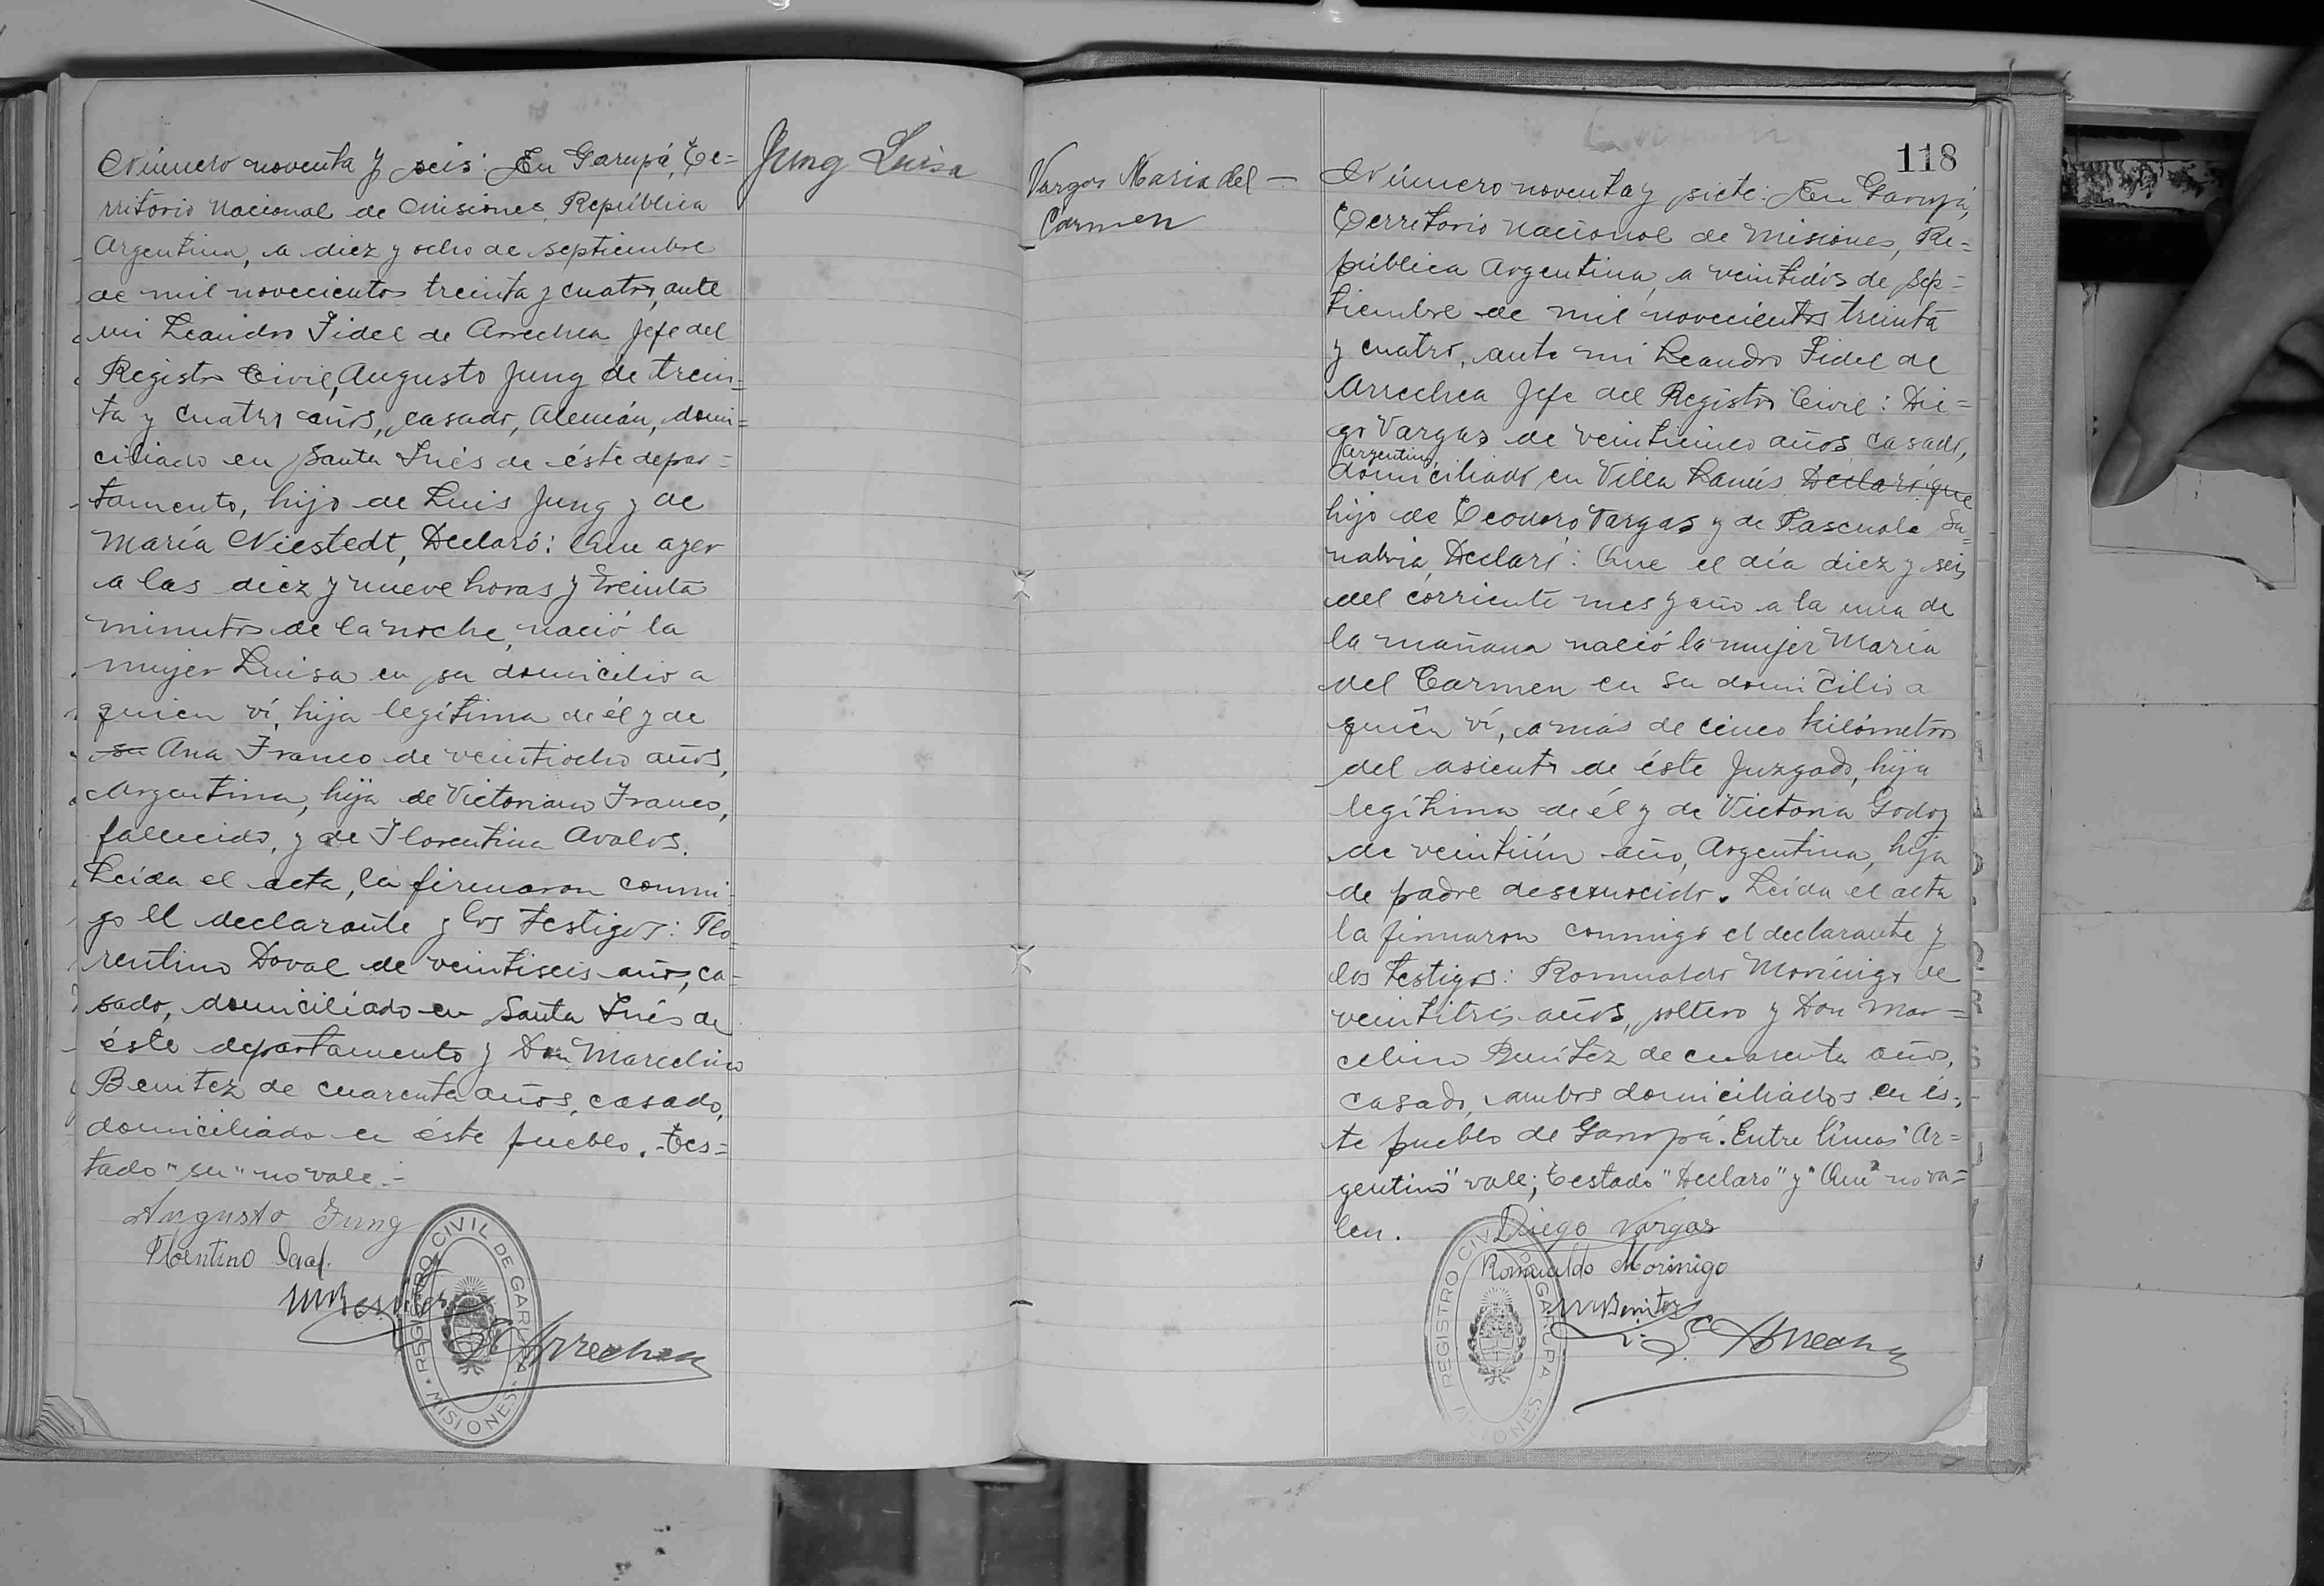 Número noventa y seis: En Garupá, Te=
rritorio Nacional de Misiones, República
Argentina, a diez y ocho de septiembre
de mil novecientos treinta y cuatro, ante
mi Leandro Fidel de Arrechea Jefe del
Registro Civil, Augusto Jung de trein=
ta y cuatro años, casado, Alemán, domi=
ciliado en Santa Inés de éste depar=
tamento, hijo de Luis Jung y de
María Niestedt, Declaró: Que ayer
a las diez y nueve horas y treinta
minutos de la noche, nació la
mujer Luisa en su domicilio a
quien ví, hija legítima de él y de
su Ana Franco de veintiocho años,
Argentina, hija de Victoriano Franco,
fallecido, y de Florentina Avalos.
Leida el acta, la firmaron conmi=
go el declarante y los testigos: Flo=
rentino Doval de veintiseis años, ca=
sado, domiciliado en Santa Inés de
éste departamento y Don Marcelino
Benitez de cuarenta años, casado,
domiciliado en éste pueblo. Tes=
tado "su" no vale.-
Augusto Jung
Florentino
MBenitez
Arrechea
REGISTRO CIVIL DE GARUPA
MISIONES
Jung Luisa
Vargas Maria del -
Carmen
118
Número noventa y siete: En Garupá,
Territorio Nacional de Misiones, Re=
pública Argentina, a veintidós de Sep=
tiembre de mil novecientos treinta
y cuatro, ante mi Leandro Fidel de
Arrechea Jefe del Registro Civil: Die=
go Vargas de veinticinco años, casado,
Argentino
domiciliado en Villa Lanús, Declaró: que
hijo de Teodoro Vargas y de Pascuala Sa=
nabria, Declaró: Que el día diez y seis
del corriente mes y año a la una de
la mañana nació la mujer María
del Carmen en su domicilio a
quién ví, a más de cinco kilómetros
del asiento de éste Juzgado, hija
legítima de él y de Victoria Godoy
de veintiún año, Argentina, hija
de padre desconocido. Leida el acta
la firmaron conmigo el declarante y
los testigos: Romualdo Morinigo de
veintitrés años, soltero y Don Mar=
celino Benítez de cuarenta años,
casado, ambos domiciliados en és=
te pueblo de Garupá. Entre líneas "Ar=
gentino" vale; testado "Declaró" y "Que" no va=
len.
Diego Vargas
Romualdo Morinigo
MBenitez
Arrechea
REGISTRO CIVIL DE GARUPA
MISIONES